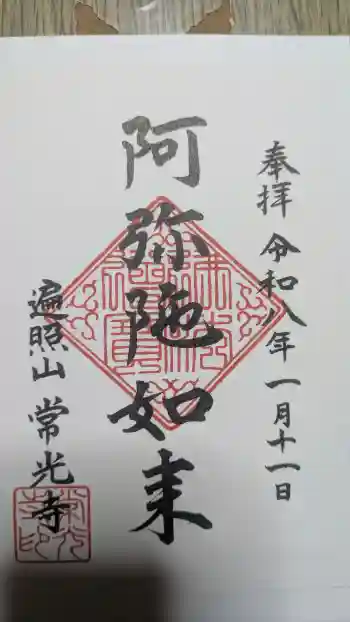 奉拝 令和八年 一月十一日
阿弥陁如来
遍照山 常光寺